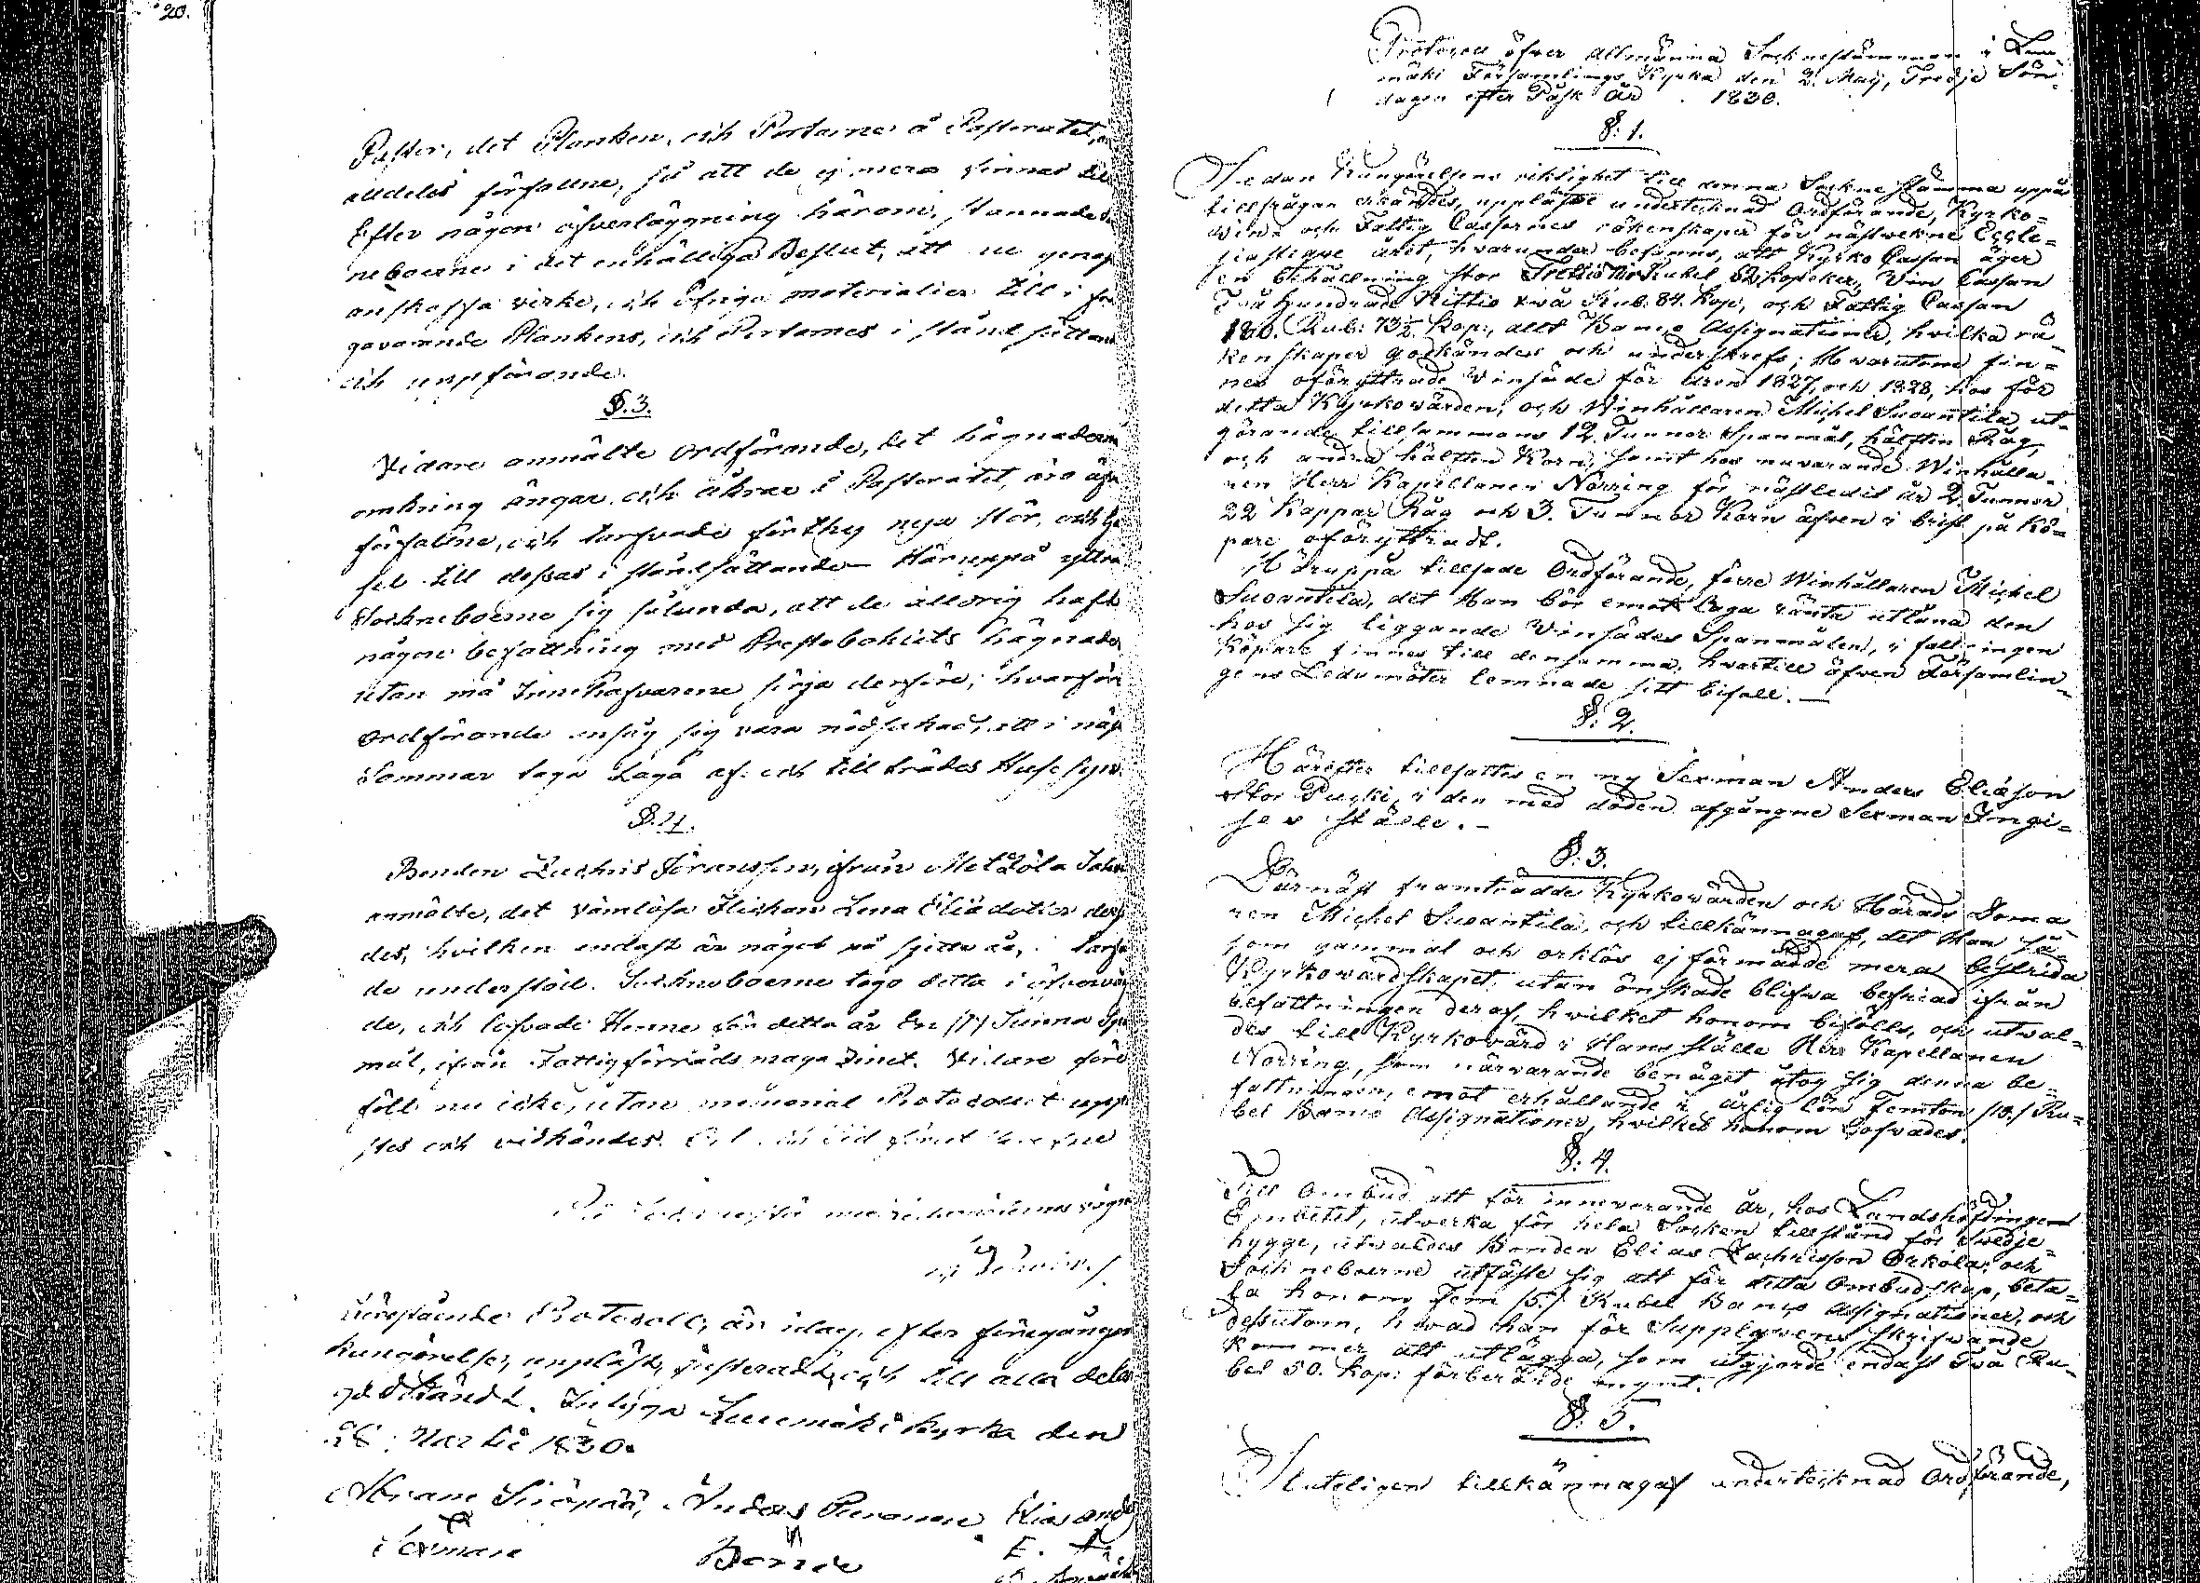 20.
Pastor, det Planken, och Portarne å Pastoratet, äro
alldeles förfallne, så att de ej mera finnas till
Efter någon öfverläggning härom, stannade Sock
neboerne i det enhälliga Beslut, att nu genast
anskaffa virke, och öfriga materialier till i fråga
gavarande Plankens, och Portarnes i stånd sättande
och uppförande.
§. 3.
Vidare anmälte Ordförande, det hägnaderne
omkring ängar och åkrar i Pastoratet, äro äfven
förfallne, och tarfvade förthy nya stör, och
sel till dessas i ståndsättande. Häruppå yttra
Sockneboerne sig sålunda, att de alldrig haft
någon befattning med Prestabohlets hägnader
utan må Innehafvarene sörja derföre; hvarföre
Ordförande ansåg sig vara nödsakad, att i näst
Sommar taga Laga af- och tillträdes Husesyn.
§. 4.
Bonden Zachris Göransson, ifrån Mettölä
anmälte, det vanlösa Flickan Lena Eliædotter
des, hvilken endast är något på sjette år,
de understöd. Sockneboerne togo detta i öfvervägan
de, och lofvade Henne för detta år En /1/ Tunna Span
mål, ifrån Fattigförråds magazinet. Vidare före
föll nu icke, utan Protocollet upp
stes och vidkändes. år och tid som förut
På Socknestämmans vägnar
Föreståënde Protocoll, är idag, efter föregången
kungörelse, uppläst, justeradt, och till alla delar
godkändt. Intyga Luumäki kyrka den
28. Martii 1830.
Anders Elias Anders
Sexman Bonde
Protocoll öfver allmänna Sockenstämman i Luu
mäki Församlings Kyrka den 2. Maij, Tredje Sön-
dagen efter Påsk År 1830.
§: 1.
Sedan Kungörelsens riktighet till denna Sockne stämma uppå
tillfrågan erkändes, upplästes undertecknad Ordförande, Kyrko-
Win- och Fattig Cassornes räkenskaper för nästvekne Eccle-
siastique året, hvarunder befanns, att Kyrko Cassan äger
en behållning stor Rubel 52 kopeker, Vin Cassan
Två Hundrade Nittio två Rub. 84. kop:, och Fattig Cassan
180. Rub: 73½ kop:, allt Banco Assignationer, hvilka rä-
kenskaper godkändes och underskrefs; Hvarutom fin-
nes oföryttrade Winsäde för åren 1827 och 1828, hos för
detta Kyrkowärden, och Winhållaren Michel Suoantila, ut-
görande tillsammans 12. Tunnor Spanmål, hälften Råg,
och andra hälften Korn, samt hos nuvarande Winhålla-
ren Herr Kapellanen Norring för nästledit år 2. Tunnor
22 Kappar Råg och 3. Tunnor Korn äfven i brist på Kö-
pare oföryttradt.
Häruppå tillsade Ordförande, förre Winhållaren Michel
Suoantila, det Han bör emot laga ränta utlåna den
hos sig liggande Vinsädes Spanmålen, i fall ingen
Köpare finnes till densamma, hvartill äfven Församlin-
gens Ledamöter lemnade sitt bifall. —
§: 2.
Härefter tillsattes en ny Sexman Anders Eliasson
Stor Pucki, i den med döden afgångne Sexman Ingi-
ses ställe. -
§: 3.
Därnäst framträdde Kyrkowärden och Härads Doma-
ren Michel Suoantila, och tillkännagaf, det Han så-
som gammal och orklös ej förmådde mera bestrida
Kyrkowardskapet, utan önskade blifwa befriad ifrån
befattningen deraf, hwilket honom bifölls, och utwal-
des till Kyrkowärd i Hans ställe Herr Kapellanen
Norring, som närvarande benäget åtog sig denna be-
fattningen, emot erhållande i årlig lön Femton /15./ Ru-
bel Banco Assignationer, hvilket honom lofvades.
§: 4.
Till Ombud att för innevarande år, hos Landshöfdinge
Embetet, utwerka för hela Socken tillstånd för Swedje-
hygge, utwaldes Bonden Elias Zachrisson Orkola, och
Sockneboerne utfäste sig att för detta Ombudskap, beta-
la honom Fem /5./ Rubel Banco Assignationer, och
dessutom, hwad han för Supplikens skrifwande
kommer att utlägga, som utgjorde endast Två Ru-
bel 50. kop:
§: 5.
Sluteligen tillkännagaf undertecknad Ordförande,